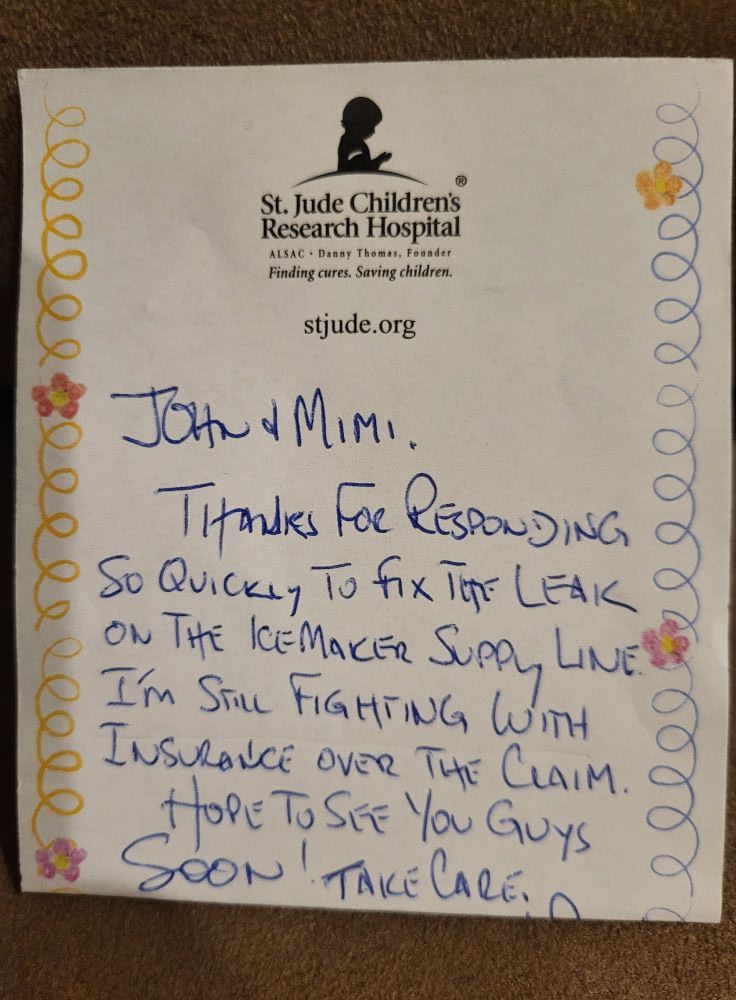 St. Jude Children's
Research Hospital
®
ALSAC · Danny Thomas, Founder
Finding cures. Saving children.
stjude.org
JOHN & MIMI.
THANKS FOR RESPONDING
SO QUICKLY TO FIX THE LEAK
ON THE ICEMAKER SUPPLY LINE.
I'M STILL FIGHTING WITH
INSURANCE OVER THE CLAIM.
HOPE TO SEE YOU GUYS
SOON! TAKE CARE.